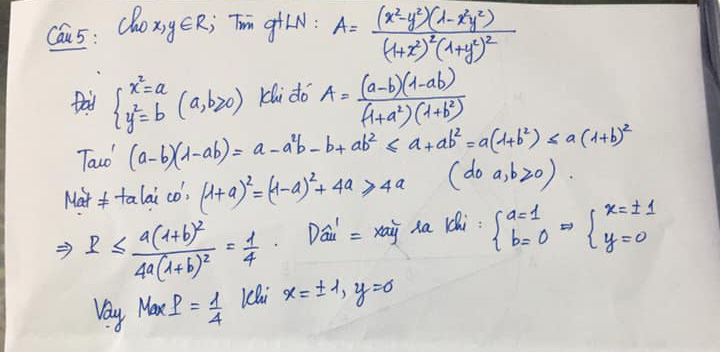 Câu 5: Cho x,y ∈ R; Tìm gtLN: A = (x²-y²)(1-x²y²) / (1+x²)²(1+y²)²
Đặt { x²=a ; y²=b (a,b≥0) khi đó A = (a-b)(1-ab) / (1+a²)(1+b²)
Ta có (a-b)(1-ab) = a - a²b - b + ab² ≤ a + ab² = a(1+b²) ≤ a(1+b)²
(do a,b≥0).
Mặt ≠ ta lại có, (1+a)² = (1-a)² + 4a ≥ 4a
⇒ P ≤ a(1+b)² / 4a(1+b)² = 1/4. Dấu = xảy ra khi: { a=1 ; b=0 ⇒ { x=±1 ; y=0
Vậy Max P = 1/4 khi x=±1, y=0